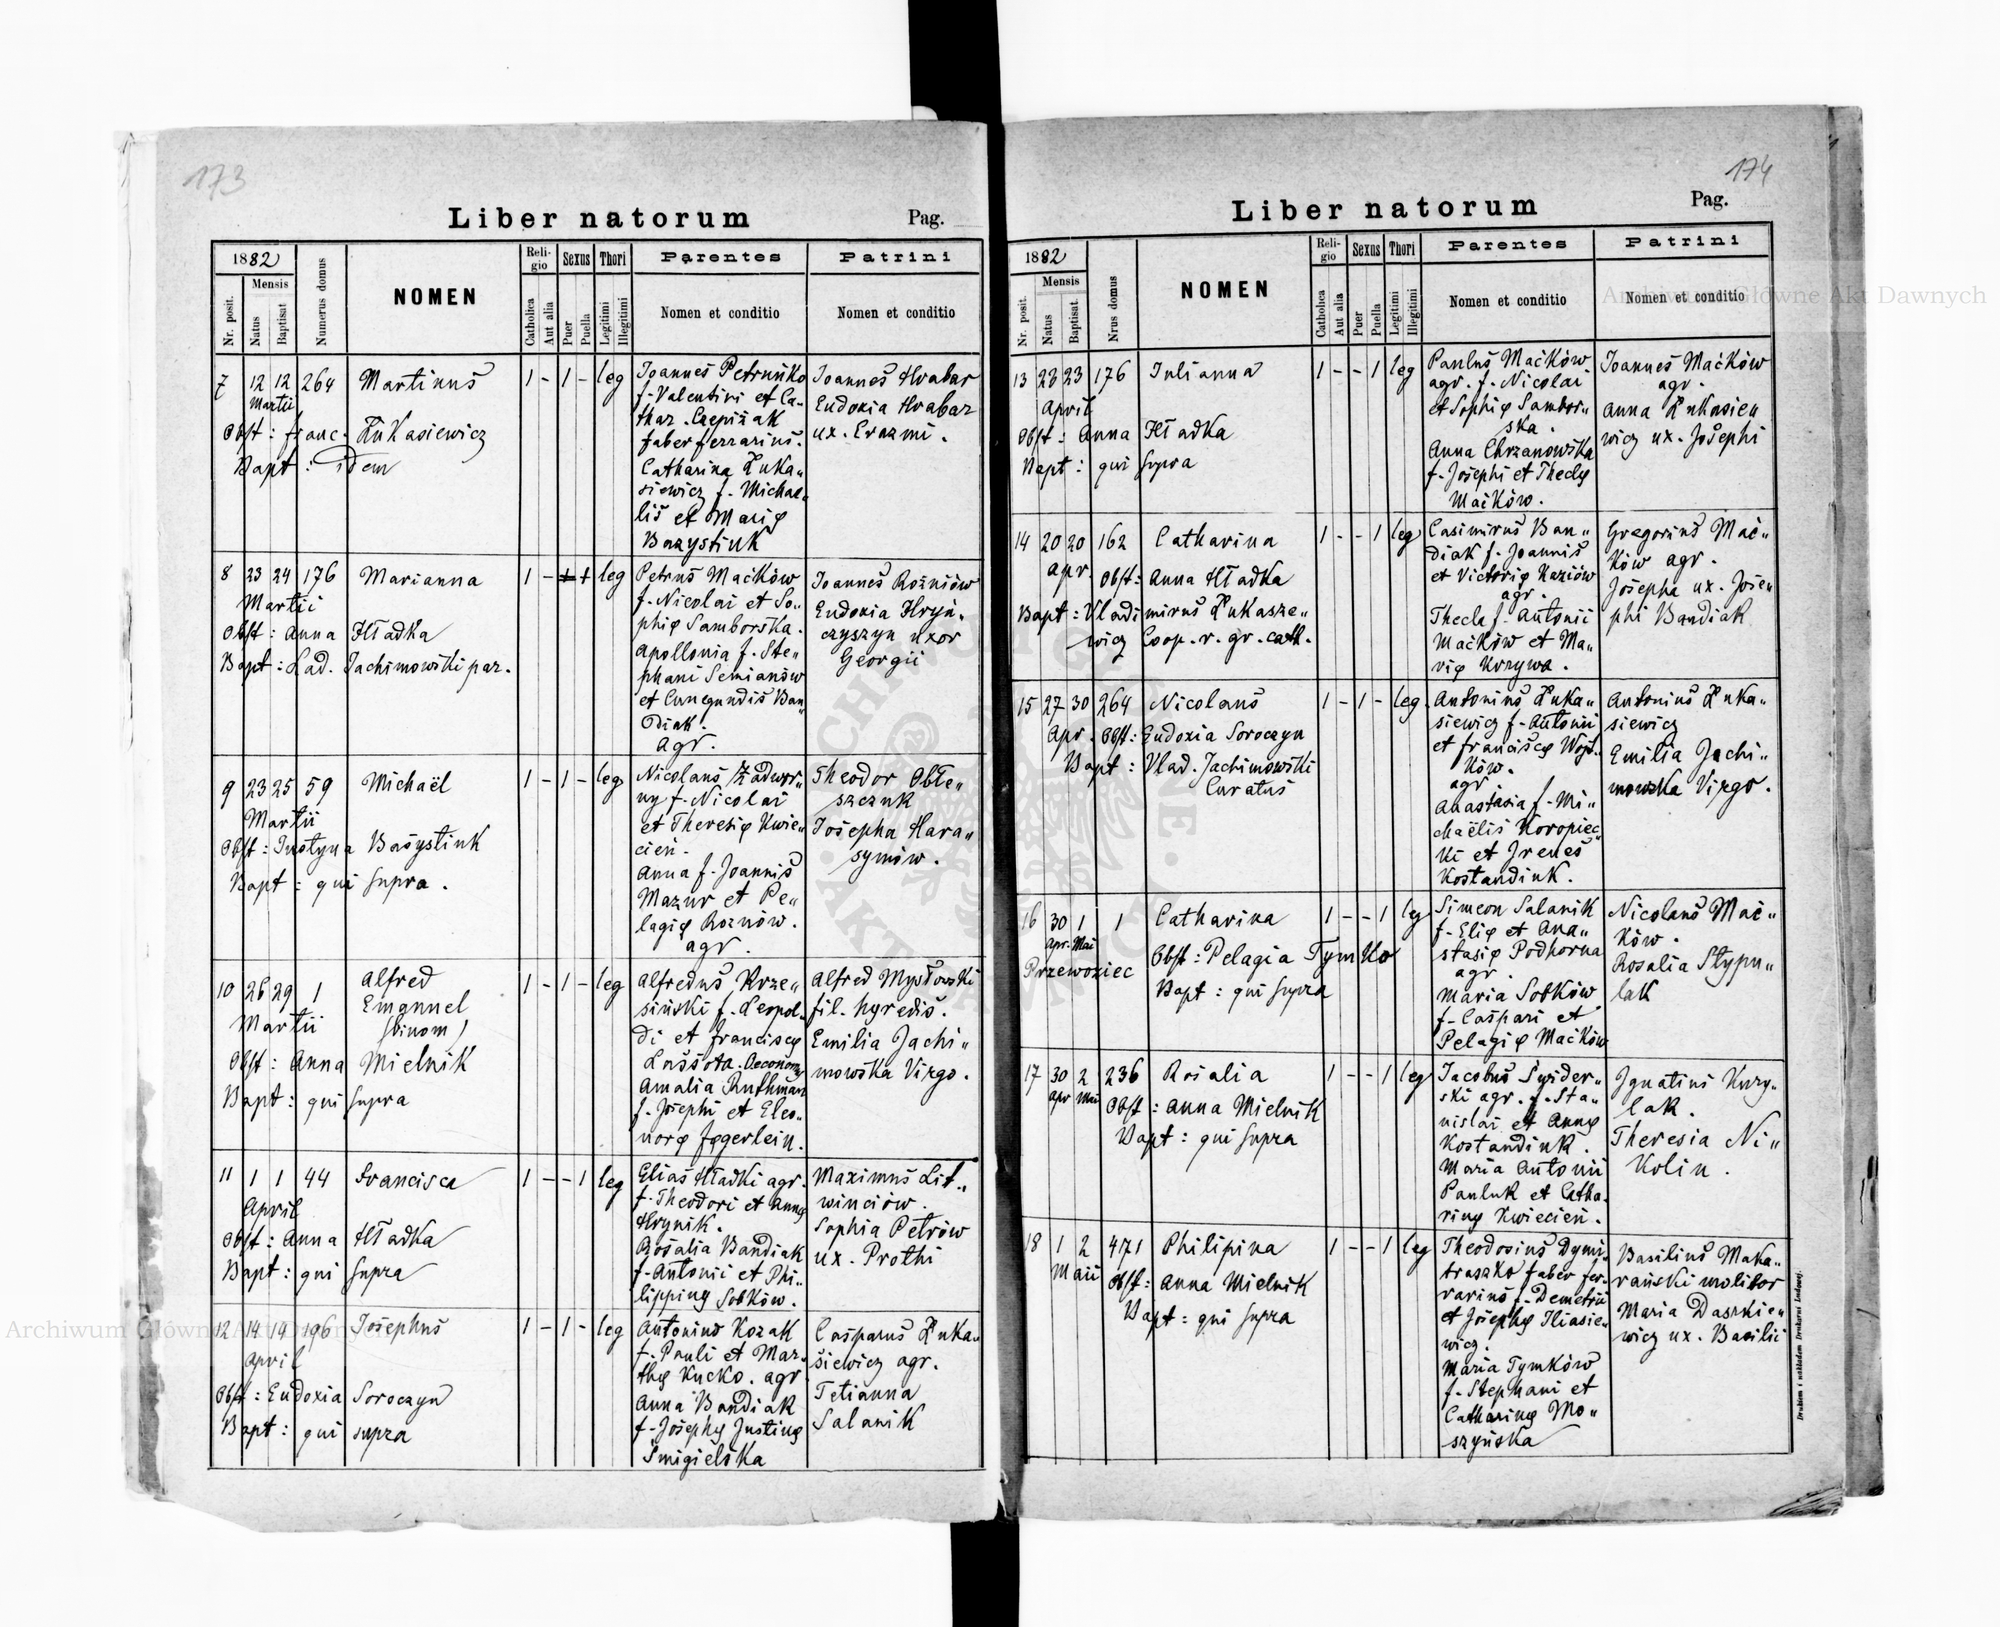 173
Liber natorum Pag.
1882
Mensis
Nr. posit.
Natus
Baptisat
Numerus domus
NOMEN
Religio
Catholica
Aut alia
Sexus
Puer
Puella
Thori
Legitimi
Illegitimi
Parentes
Nomen et conditio
Patrini
Nomen et conditio
7 12 12 264 Martinus 1 - 1 - leg
Martii
Obst: franc. Łukasiewicz
Bapt: idem
Joannes Petrunko
f. Valentini et Ca„
thar. Czepiżak
faber ferrarius.
Catharina Łuka„
siewicz f. Michae„
lis et Marię
Bazystiuk
Joannes Hrabar
Eudoxia Hrabar
ux. Erazmi.
8 23 24 176 Marianna 1 - 1 leg
Martii
Obst: Anna Hładka
Bapt: Lad. Jachimowski par.
Petrus Maćków
f. Nicolai et So„
phię Samborska.
Apollonia f. Ste„
phani Semianów
et Cunegundis Ban„
diak.
agr.
Joannes Rożniów
Eudoxia Hryń„
czyszyn uxor
Georgii
9 23 25 59 Michaël 1 - 1 - leg
Martii
Obst: Justyna Basystiuk
Bapt: qui supra.
Nicolaus Zadwor„
ny f. Nicolai
et Theresię Kwie„
cień.
Anna f. Joannis
Mazur et Pe„
lagię Roznów.
agr.
Theodor Obłe„
szczuk
Josepha Hara„
symów.
10 26 29 1 Alfred 1 - 1 - leg
Martii Emanuel
(binom)
Obst: Anna Mielnik
Bapt: qui supra
Alfredus Krze„
siński f. Leopol„
di et Franciscę
Lassota. Oeconom
Amalia Ruthman
f. Josephi et Eleo„
norę Jęgerlein.
Alfred Mysłowski
fil. hyredis.
Emilia Jachi„
mowska Virgo.
11 1 1 44 Francisca 1 - - 1 leg
April
Obst: Anna Hładka
Bapt: qui supra
Elias Hładki agr.
f. Theodori et Annę
Hrynik.
Rosalia Bandiak
f. Antonii et Phi„
lippinę Sobków.
Maximus Lit„
winciów.
Sophia Petrów
ux. Prothi
12 14 14 196 Josephus 1 - 1 - leg
April
Obst: Eudoxia Soroczyn
Bapt: qui supra
Antonius Kozak
f. Pauli et Mar„
thę Kucko. agr
Anna Bandiak
f. Josephę Justinę
Smigielska
Casparus Łuka„
siewicz agr.
Tetianna
Salanik
174
Liber natorum Pag.
1882
Mensis
Nr. posit.
Natus
Baptisat.
Nrus domus
NOMEN
Religio
Catholica
Aut alia
Sexus
Puer
Puella
Thori
Legitimi
Illegitimi
Parentes
Nomen et conditio
Patrini
Nomen et conditio
13 23 23 176 Julianna 1 - - 1 leg
April
Obst: Anna Hładka
Bapt: qui supra
Paulus Maćków
agr. f. Nicolai
et Sophię Sambor„
ska.
Anna Chrzanowska
f. Josephi et Theclę
Maćków.
Joannes Maćków
agr.
Anna Łukasie„
wicz ux. Josephi
14 20 20 162 Catharina 1 - - 1 leg
Apr. Obst: Anna Hładka
Bapt: Vladimirus Łukasze„
wicz Coop. r. gr. cath.
Casimirus Ban„
diak f. Joannis
et Victorię Kaziów
agr.
Thecla f. Antonii
Maćków et Ma„
rię Krzywa.
Gregorius Mać„
ków agr.
Josepha ux. Jose„
phi Bandiak
15 27 30 264 Nicolaus 1 - 1 - leg.
Apr. Obst: Eudoxia Soroczyn
Bapt: Vlad. Jachimowski
Curatus
Antonius Łuka„
siewicz f. Antonii
et Franciscę Wojt„
ków.
agr.
Anastasia f. Mi„
chaëlis Koropiec„
ki et Irenes
Kostandiuk.
Antonius Łuka„
siewicz
Emilia Jachi„
mowska Virgo.
16 30 1 1 Catharina 1 - - 1 leg
Apr. Mai
Przewoziec Obst: Pelagia Tymko
Bapt: qui supra
Simeon Salanik
f. Elię et Ana„
stasię Podhorna
agr.
Maria Sobków
f. Caspari et
Pelagię Maćków
Nicolaus Mać„
ków.
Rosalia Stypu„
lak
17 30 2 236 Rosalia 1 - - 1 leg
Apr Mai
Obst: Anna Mielnik
Bapt: qui supra
Jacobus Swider„
ski agr. f. Sta„
nislai et Annę
Kostandiuk.
Maria Antonii
Pauluk et Catha„
rinę Kwiecień.
Ignatius Kury„
lak.
Theresia Ni„
kolin.
18 1 2 471 Philipina 1 - - 1 leg
Maii
Obst: Anna Mielnik
Bapt: qui supra
Theodosius Dymi„
traszko faber fer„
rarius f. Demetrii
et Josephę Iliasie„
wicz.
Maria Tymków
f. Stephani et
Catharinę Mo„
szyńska
Basilius Maka„
rański molitor
Maria Daszkie„
wicz ux. Basilii
Drukiem i nakładem Drukarni Ludowej.
Archiwum Główne Akt Dawnych
Archiwum Główne Akt Dawnych
ARCHIWUM GŁÓWNE AKT DAWNYCH